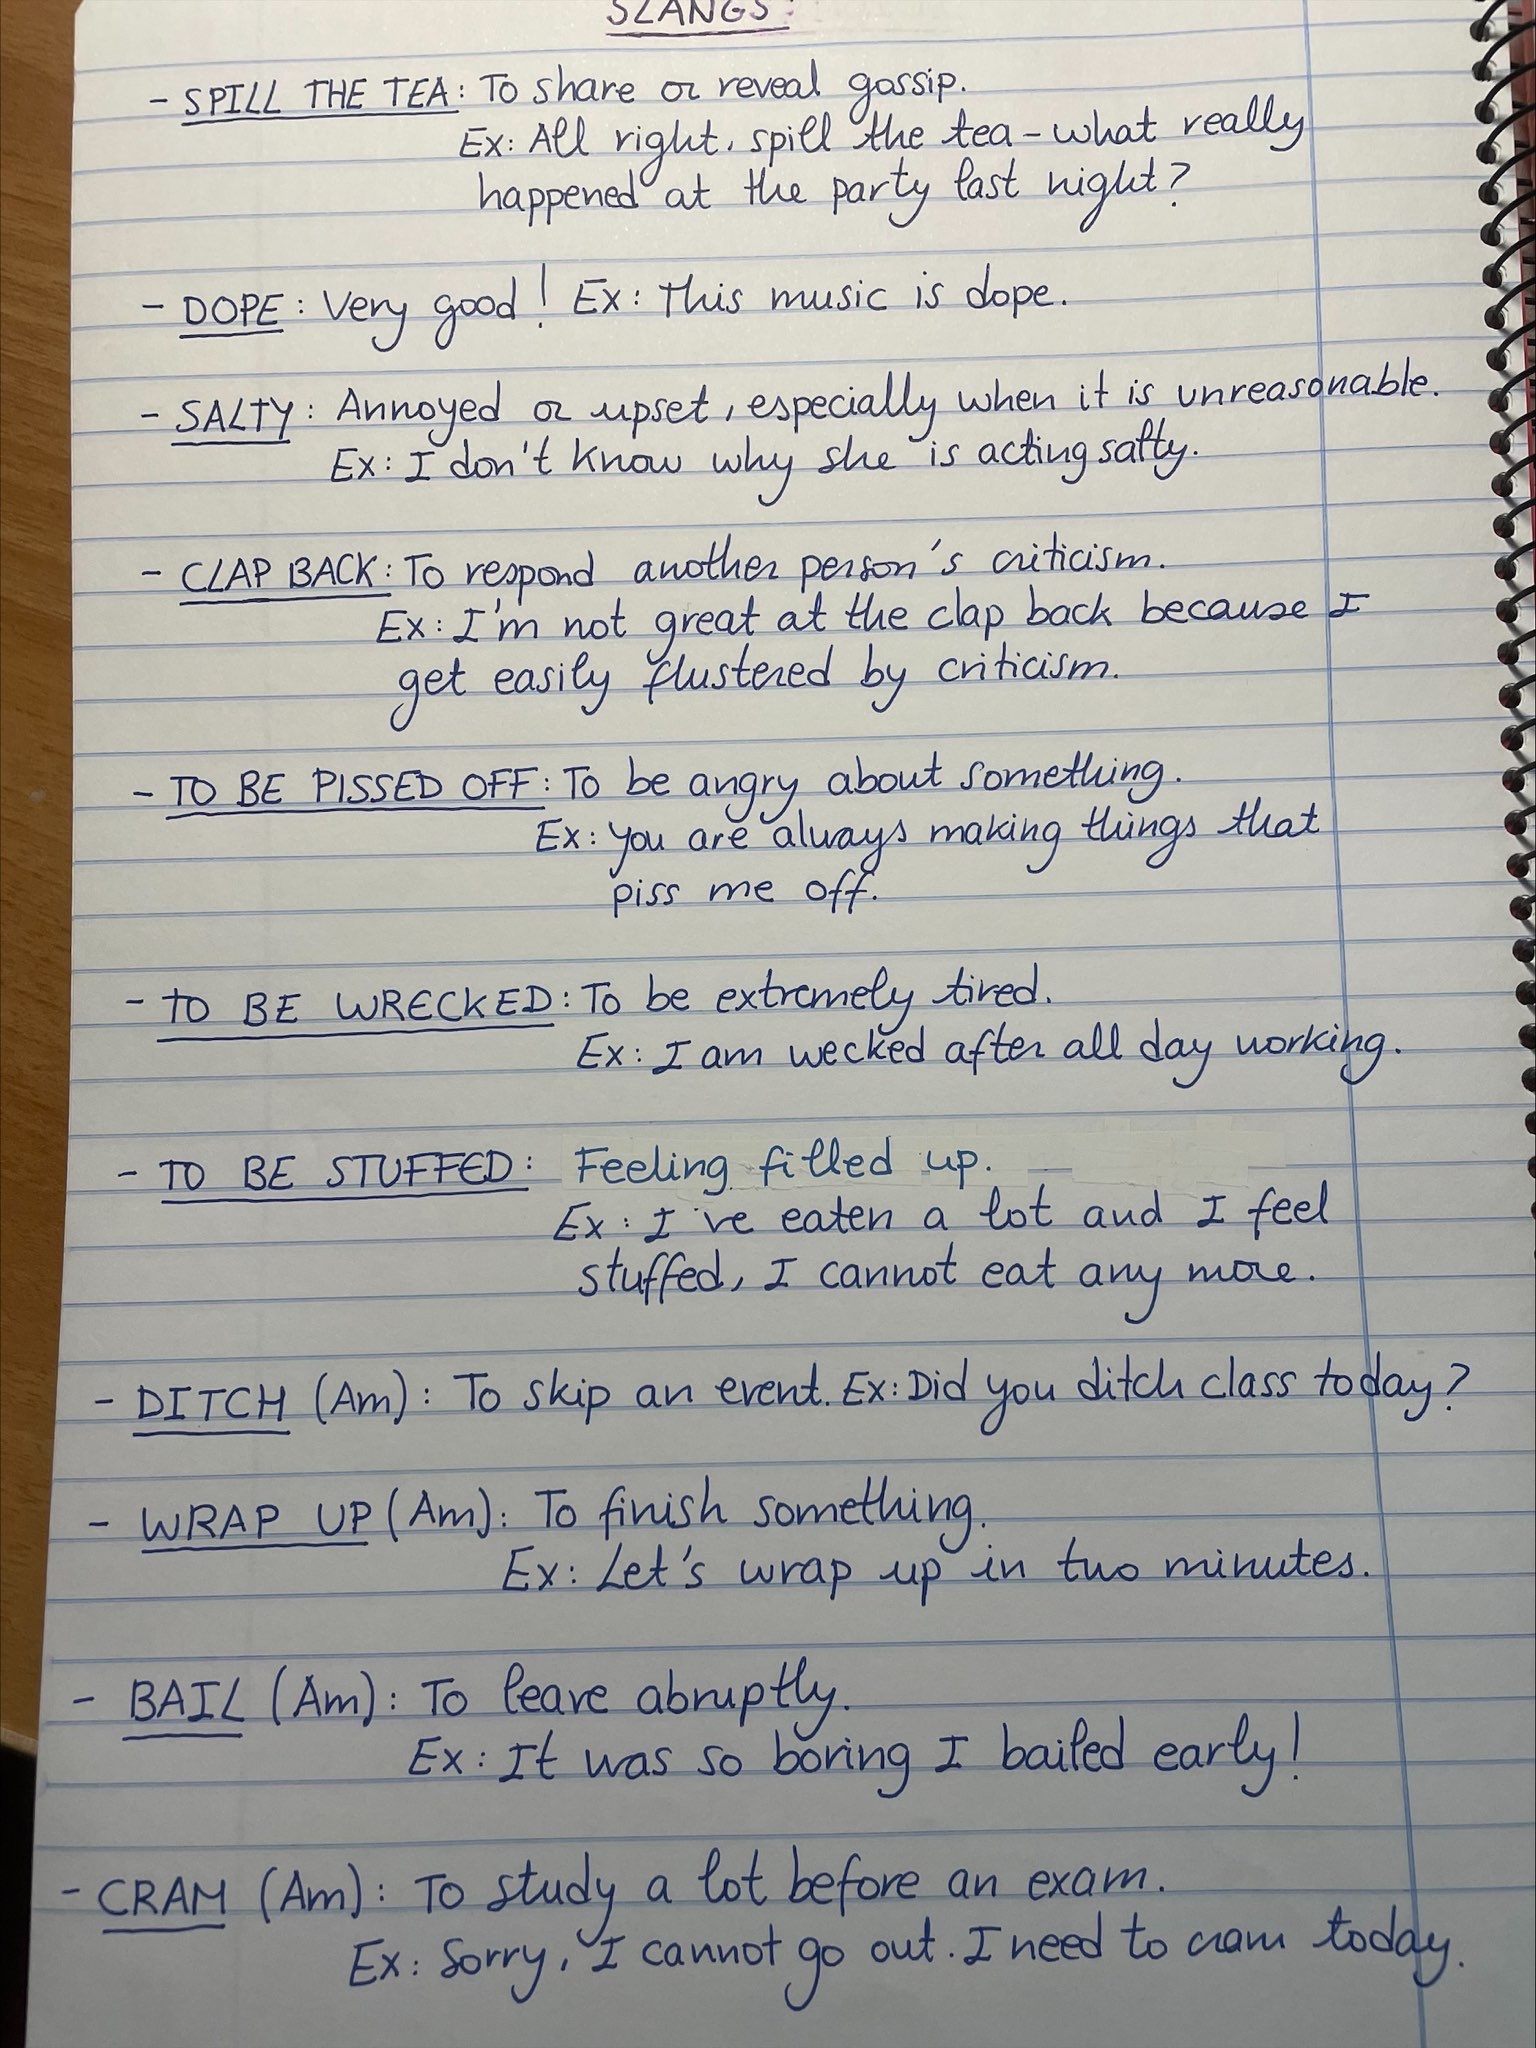 SLANGS:
- SPILL THE TEA: To share or reveal gossip.
Ex: All right, spill the tea - what really
happened at the party last night?
- DOPE: Very good! Ex: This music is dope.
- SALTY: Annoyed or upset, especially when it is unreasonable.
Ex: I don't know why she is acting salty.
- CLAP BACK: To respond another person's criticism.
Ex: I'm not great at the clap back because I
get easily flustered by criticism.
- TO BE PISSED OFF: To be angry about something.
Ex: You are always making things that
piss me off.
- TO BE WRECKED: To be extremely tired.
Ex: I am wecked after all day working.
- TO BE STUFFED: Feeling filled up.
Ex: I've eaten a lot and I feel
stuffed, I cannot eat any more.
- DITCH (Am): To skip an event. Ex: Did you ditch class today?
- WRAP UP (Am): To finish something.
Ex: Let's wrap up in two minutes.
- BAIL (Am): To leave abruptly.
Ex: It was so boring I bailed early!
- CRAM (Am): To study a lot before an exam.
Ex: Sorry, I cannot go out. I need to cram today.